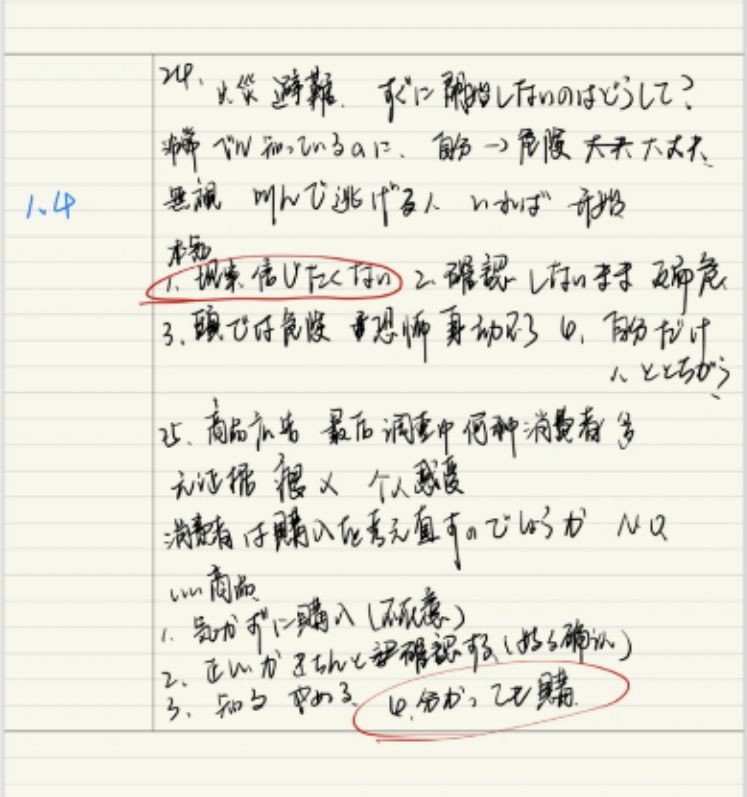 24. 火災 避難. すぐに開始しないのはどうして?
ベル 知っているのに. 自分→危険 大丈夫
1.4
無視 叫んで逃げる人 いれば 开始
1. 現実 信じたくない 2. 確認 しないまま 危
3. 頭では危険 恐怖 身动 4. 自分だけ
人とちがう
25. 商品広告 最后 调查中 何种消费者 多
元证据 个人感覚
消費者は購入を考え直すのでしょうか NO
いい商品
1. 気づかずに購入 (不注意)
2. 正しいかきちんと確認する (好3确认)
3. 知る やめる 4. 分かっても購